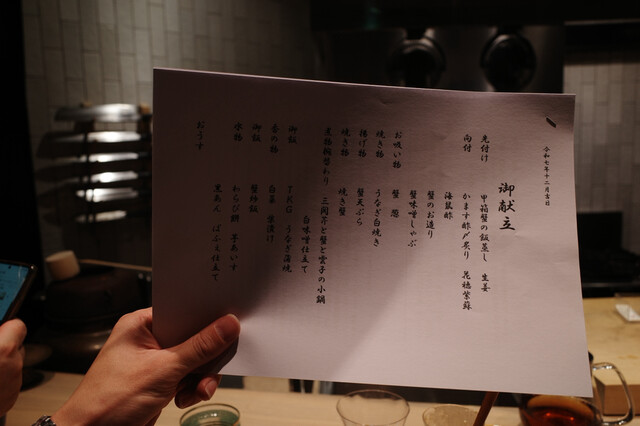 令和七年十二月吉日
御献立
先付け 甲箱蟹の飯蒸し 生姜
向付 かます酢〆炙り 花穂紫蘇
海鼠酢
蟹のお造り
蟹味噌しゃぶ
お吸い物 蟹 葱
焼き物 うなぎ白焼き
揚げ物 蟹天ぷら
焼き物 焼き蟹
煮物椀替わり 三関芹と蟹と雲子の小鍋
白味噌仕立て
御飯 TKG うなぎ蒲焼
香の物 白菜 糠漬け
御飯 蟹炒飯
水物 わらび餅 芋あいす
おうす 黒あん ぱふぇ仕立て